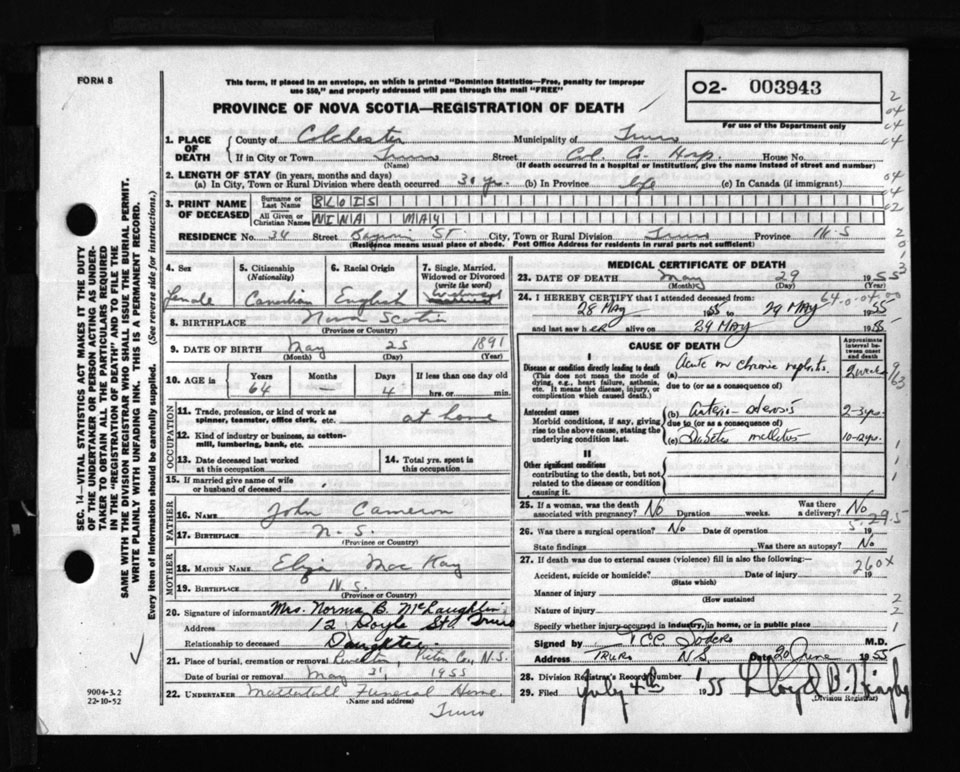 FORM 8
This form, if placed in an envelope, on which is printed "Dominion Statistics—Free, penalty for improper
use $50," and properly addressed will pass through the mail "FREE"
PROVINCE OF NOVA SCOTIA—REGISTRATION OF DEATH
O2- 003943
For use of the Department only
SEC. 14—VITAL STATISTICS ACT MAKES IT THE DUTY
OF THE UNDERTAKER OR PERSON ACTING AS UNDER-
TAKER TO OBTAIN ALL THE PARTICULARS REQUIRED
IN THE "REGISTRATION OF DEATH" AND TO FILE THE
SAME WITH THE DIVISION REGISTRAR WHO SHALL ISSUE THE BURIAL PERMIT.
WRITE PLAINLY WITH UNFADING INK. THIS IS A PERMANENT RECORD.
Every item of information should be carefully supplied. (See reverse side for instructions.)
1. PLACE OF DEATH
County of Colchester Municipality of Truro
If in City or Town Truro Street Col. C. Hosp. House No.
(Name) (If death occurred in a hospital or institution, give the name instead of street and number)
2. LENGTH OF STAY (in years, months and days)
(a) In City, Town or Rural Division where death occurred 30 yrs. (b) In Province life (c) In Canada (if immigrant)
3. PRINT NAME OF DECEASED
Surname or Last Name BLOIS
All Given or Christian Names NINA MAY
RESIDENCE No. 34 Street St. City, Town or Rural Division Truro Province N.S
(Residence means usual place of abode. Post Office Address for residents in rural parts not sufficient)
4. Sex
Female
5. Citizenship (Nationality)
Canadian
6. Racial Origin
English
7. Single, Married, Widowed or Divorced (write the word)
Widowed
8. BIRTHPLACE Nova Scotia
(Province or Country)
9. DATE OF BIRTH May 25 1891
(Month) (Day) (Year)
10. AGE in Years Months Days If less than one day old
64 — 4 hrs. or min.
OCCUPATION
11. Trade, profession, or kind of work as spinner, teamster, office clerk, etc. at home
12. Kind of industry or business, as cotton-mill, lumbering, bank, etc.
13. Date deceased last worked at this occupation
14. Total yrs. spent in this occupation
15. If married give name of wife or husband of deceased
FATHER
16. NAME John Cameron
17. BIRTHPLACE N.S.
(Province or Country)
MOTHER
18. MAIDEN NAME Eliza MacKay
19. BIRTHPLACE N.S.
(Province or Country)
20. Signature of informant Mrs. Norma B. McLaughlin
Address 12 Doyle St. Truro
Relationship to deceased Daughter
21. Place of burial, cremation or removal Pictou Co., N.S.
Date of burial or removal May 31, 1955
22. UNDERTAKER Mattatall Funeral Home
(Name and address)
Truro
9004-3.2
22-10-52
MEDICAL CERTIFICATE OF DEATH
23. DATE OF DEATH May 29 1955
(Month) (Day) (Year)
24. I HEREBY CERTIFY that I attended deceased from:
28 MAY 1955 to 29 MAY 1955
and last saw her alive on 29 MAY 1955
CAUSE OF DEATH
Approximate interval between onset and death
I
Disease or condition directly leading to death
(This does not mean the mode of dying, e.g., heart failure, asthenia, etc. It means the disease, injury, or complication which caused death.)
Acute on chronic nephritis. 2 weeks
due to (or as a consequence of)
Antecedent causes
Morbid conditions, if any, giving rise to the above cause, stating the underlying condition last.
(b) 2-3 yrs.
due to (or as a consequence of)
(c) Diabetes mellitus 10-12 yrs.
II
Other significant conditions
contributing to the death, but not related to the disease or condition causing it.
25. If a woman, was the death associated with pregnancy? No Duration weeks. Was there a delivery? No
26. Was there a surgical operation? No Date of operation 19
State findings Was there an autopsy? No
27. If death was due to external causes (violence) fill in also the following:
Accident, suicide or homicide? Date of injury 19
(State which)
Manner of injury
(How sustained
Nature of injury
Specify whether injury occurred in industry, in home, or in public place
Signed by M.D.
Address TRURO N.S. Date 20 June 1955
28. Division Registrar's Record Number
29. Filed July 4th 1955 Lloyd B.
(Division Registrar)